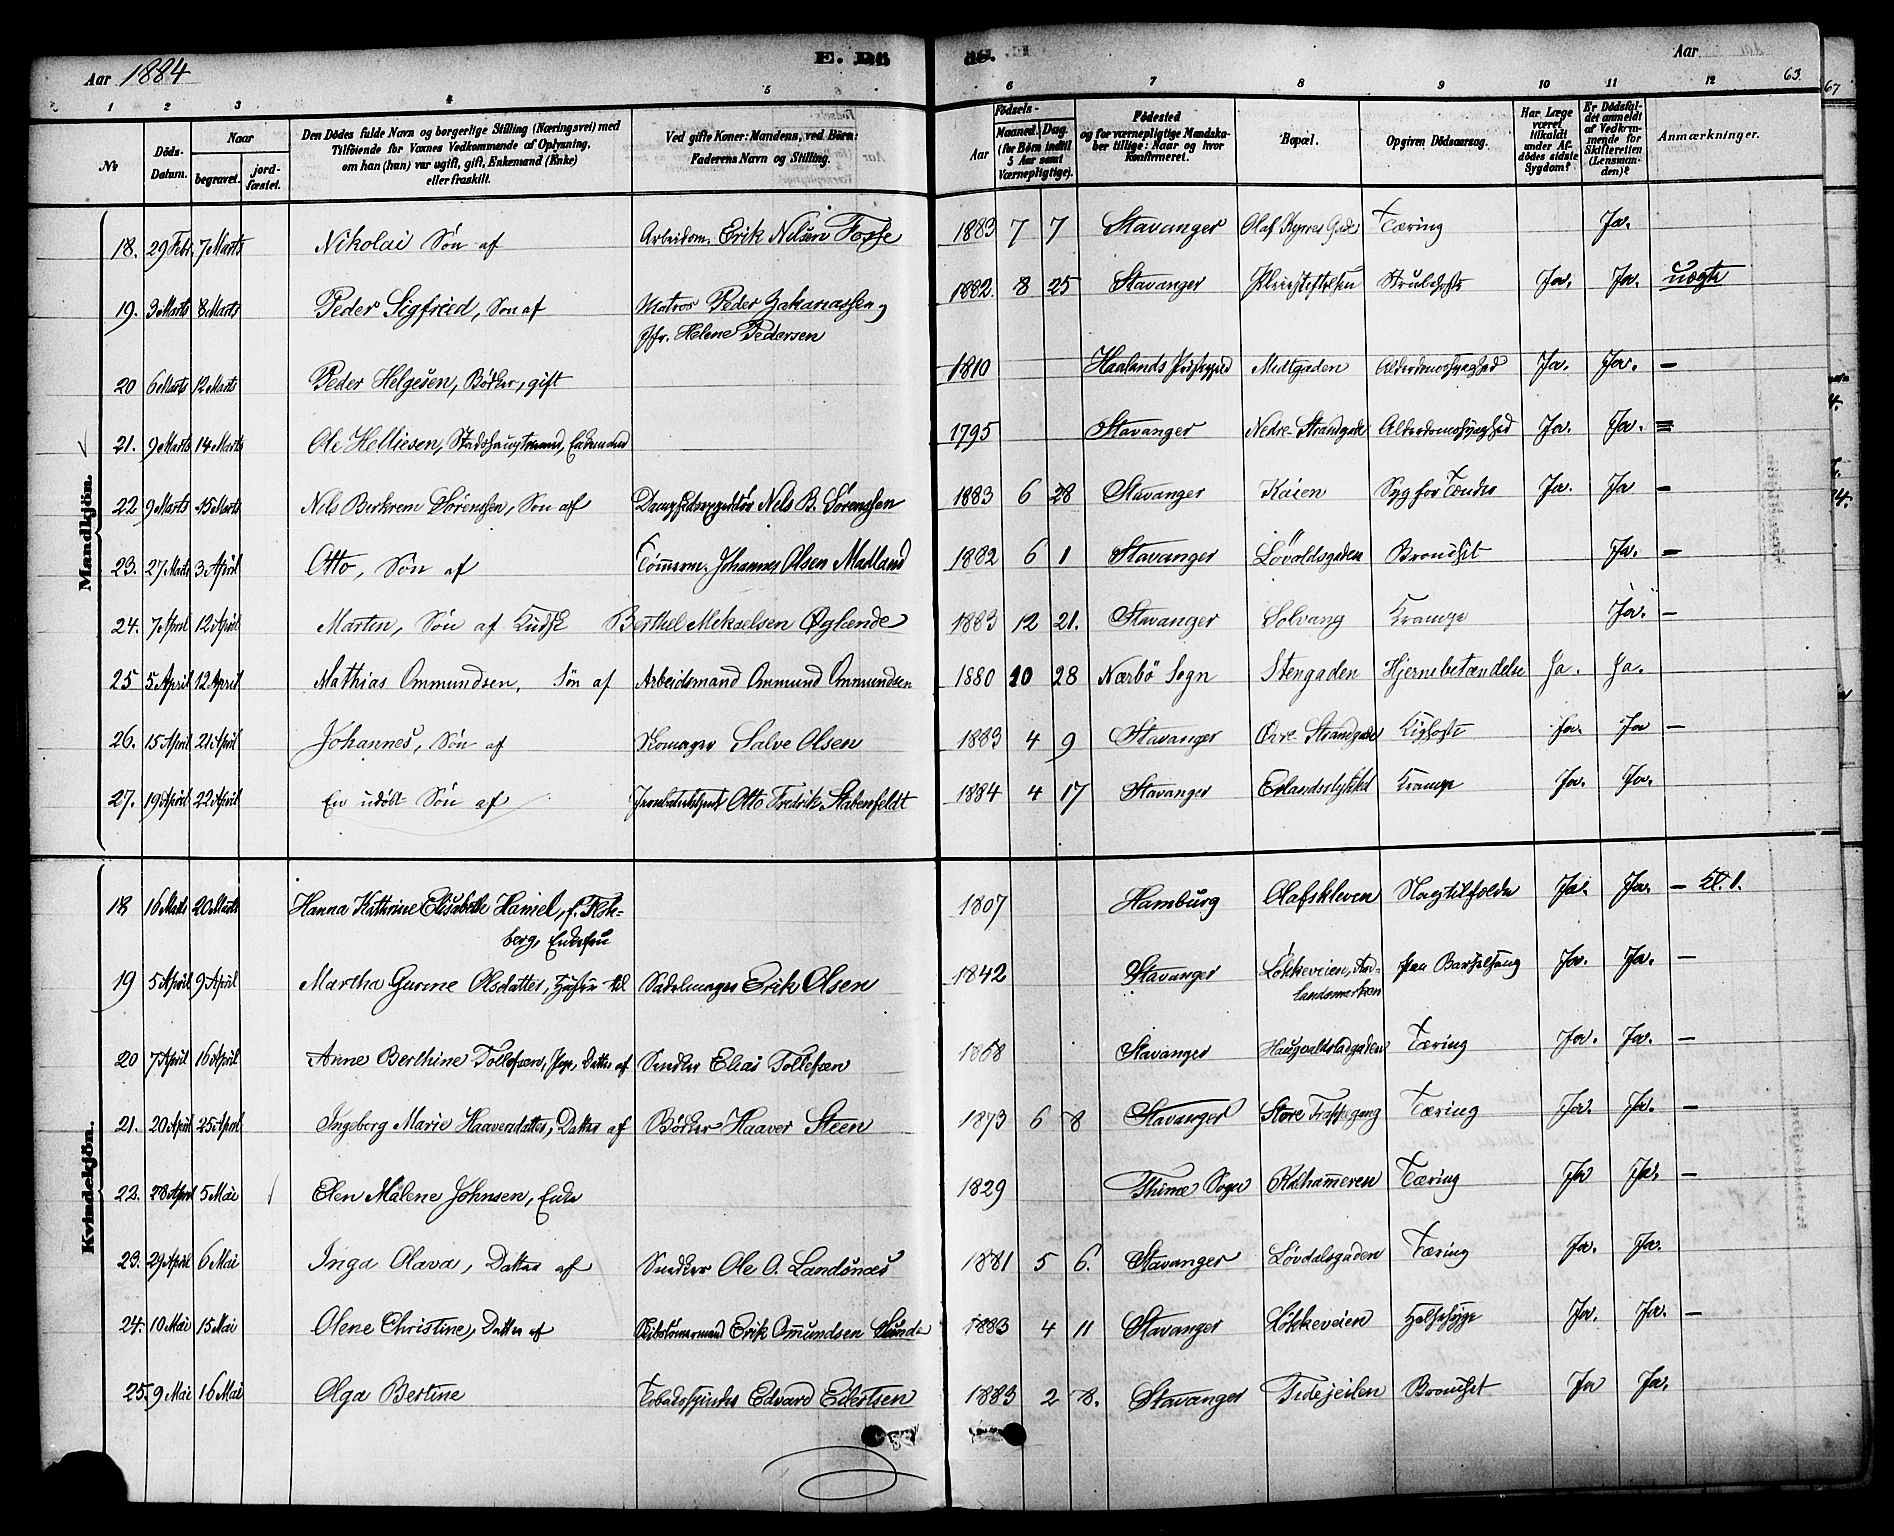 Aar 1884
E. Dö
de.
Aar
63.
67
1 2 3 4 5 6 7 8 9 10 11 12
No
Döds-Datum.
Naar begravet. jord-fæstet.
Den Dödes fulde Navn og borgerlige Stilling (Næringsvei) med Tilföiende for Voxnes Vedkommende af Oplysning, om han (hun) var ugift, gift, Enkemand (Enke) eller fraskilt.
Ved gifte Koner: Mandens, ved Börn: Faderens Navn og Stilling.
Födsels-
Aar Maaned. Dag. (for Börn indtil 5 Aar samt Værnepligtige).
Födested og for værnepligtige Mandskaber tillige: Naar og hvor konfirmeret.
Bopæl.
Opgiven Dödsaarsag.
Har Læge været tilkaldt under Afdödes sidste Sygdom?
Er Dödsfaldet anmeldt af Vedkommende for Skifteretten (Lensmanden)?
Anmærkninger.
Mandkjön.
18. 29 Febr. 7 Marts Nikolai Søn af Arbeidsm. Erik Nilsen Fosse 1883 7 7 Stavanger Olaf Kyrres Gade Tæring Ja.
19. 3 Marts 8 Marts Peder Sigfried, Søn af Matros Peder Zakariassen og 1882. 8 25 Stavanger Strubehoste Ja. Ja. uægte
Jfr. Helene Pedersen
20 6 Marts 12 Marts Peder Helgesen, Bødker, gift 1810 Haalands Midtgaden Alderdomssvaghed Ja. Ja. —
21. 9 Marts 14 Marts Ole Helliesen, Stadshauptmand, Enkemand 1795 Stavanger Nedre Strandgade Alderdomssvaghed Ja. Ja. =
22 9 Marts 15 Marts Nils Berkrem Sørenssen, Søn af Nels B. Sørenssen 1883 6 28 Stavanger Kaien Syg for Tænder Ja. Ja —
23. 27 Marts 3 April Otto, Søn af Tømmerm. Johannes Olsen Madland 1882 6 1 Stavanger Løvoldsgaden Bronchit Ja. —
24. 7 April 12 April Martin, Søn af Kudsk Berthel Mekaelsen Øglænde 1883 12 21. Stavanger Solvang Krampe Ja. —
25 5 April 12 April Mathias Ommundsen, Søn af Arbeidsmand Ommund Ommundsen 1880 10 28 Nærbö Sogn Stengaden Hjernebetændelse Ja. Ja.
26. 15 April 21 April Johannes, Søn af Skomager Salve Olsen 1883 4 9 Stavanger Øvre Strandgade Kighoste Ja. Ja —
27. 19 April 22 April En udøbt Søn af Otto Fredrik Stabenfeldt 1884 4 17 Stavanger Erlandsstykket Krampe Ja. Ja.
Kvindekjön.
18 16 Marts 20 Marts Hanna Kathrine Elisabeth Haniel, f. 1807 Hamburg Olafskleven Slagtilfælde Ja. Ja. —
berg, Enkefru
19 5 April 9 April Martha Gurine Olsdatter, Hustru til Sadelmager Erik Olsen 1842 Stavanger Løkkeveien, paa Barselseng Ja. Ja. —
landsmarken
20 7 April 16 April Anne Berthine Tollefsen, Pige, Datter af Snedker Elias Tollefsen 1868 Stavanger Haugvaldstadgaden Tæring Ja. Ja. —
21. 20 April 25 April Ingeborg Marie Haaversdatter, Datter af Bødker Haaver Steen 1873 6 8 Stavanger Store Trappegang Tæring Ja. Ja. —
22. 28 April 5 Mai Elen Malene Johnsen, Enke 1829 Thime Sogn Kolhammeren Tæring Ja Ja. —
23. 29 April 6 Mai Inga Olava, Datter af Snedker Ole O. Landsnæs 1881 5 6. Stavanger Løvdalsgaden Tæring Ja. Ja.
24. 10 Mai 15 Mai Olene Christine, Datter af Skibstømmermand Erik Omundsen Sunde 1883 4 11 Stavanger Løkkeveien Halssyge Ja. Ja. —
25. 9 Mai 16 Mai Olga Bertine Edvard Edertsen 1883 2 8. Stavanger Tidejeilen Bronchit Ja Ja.